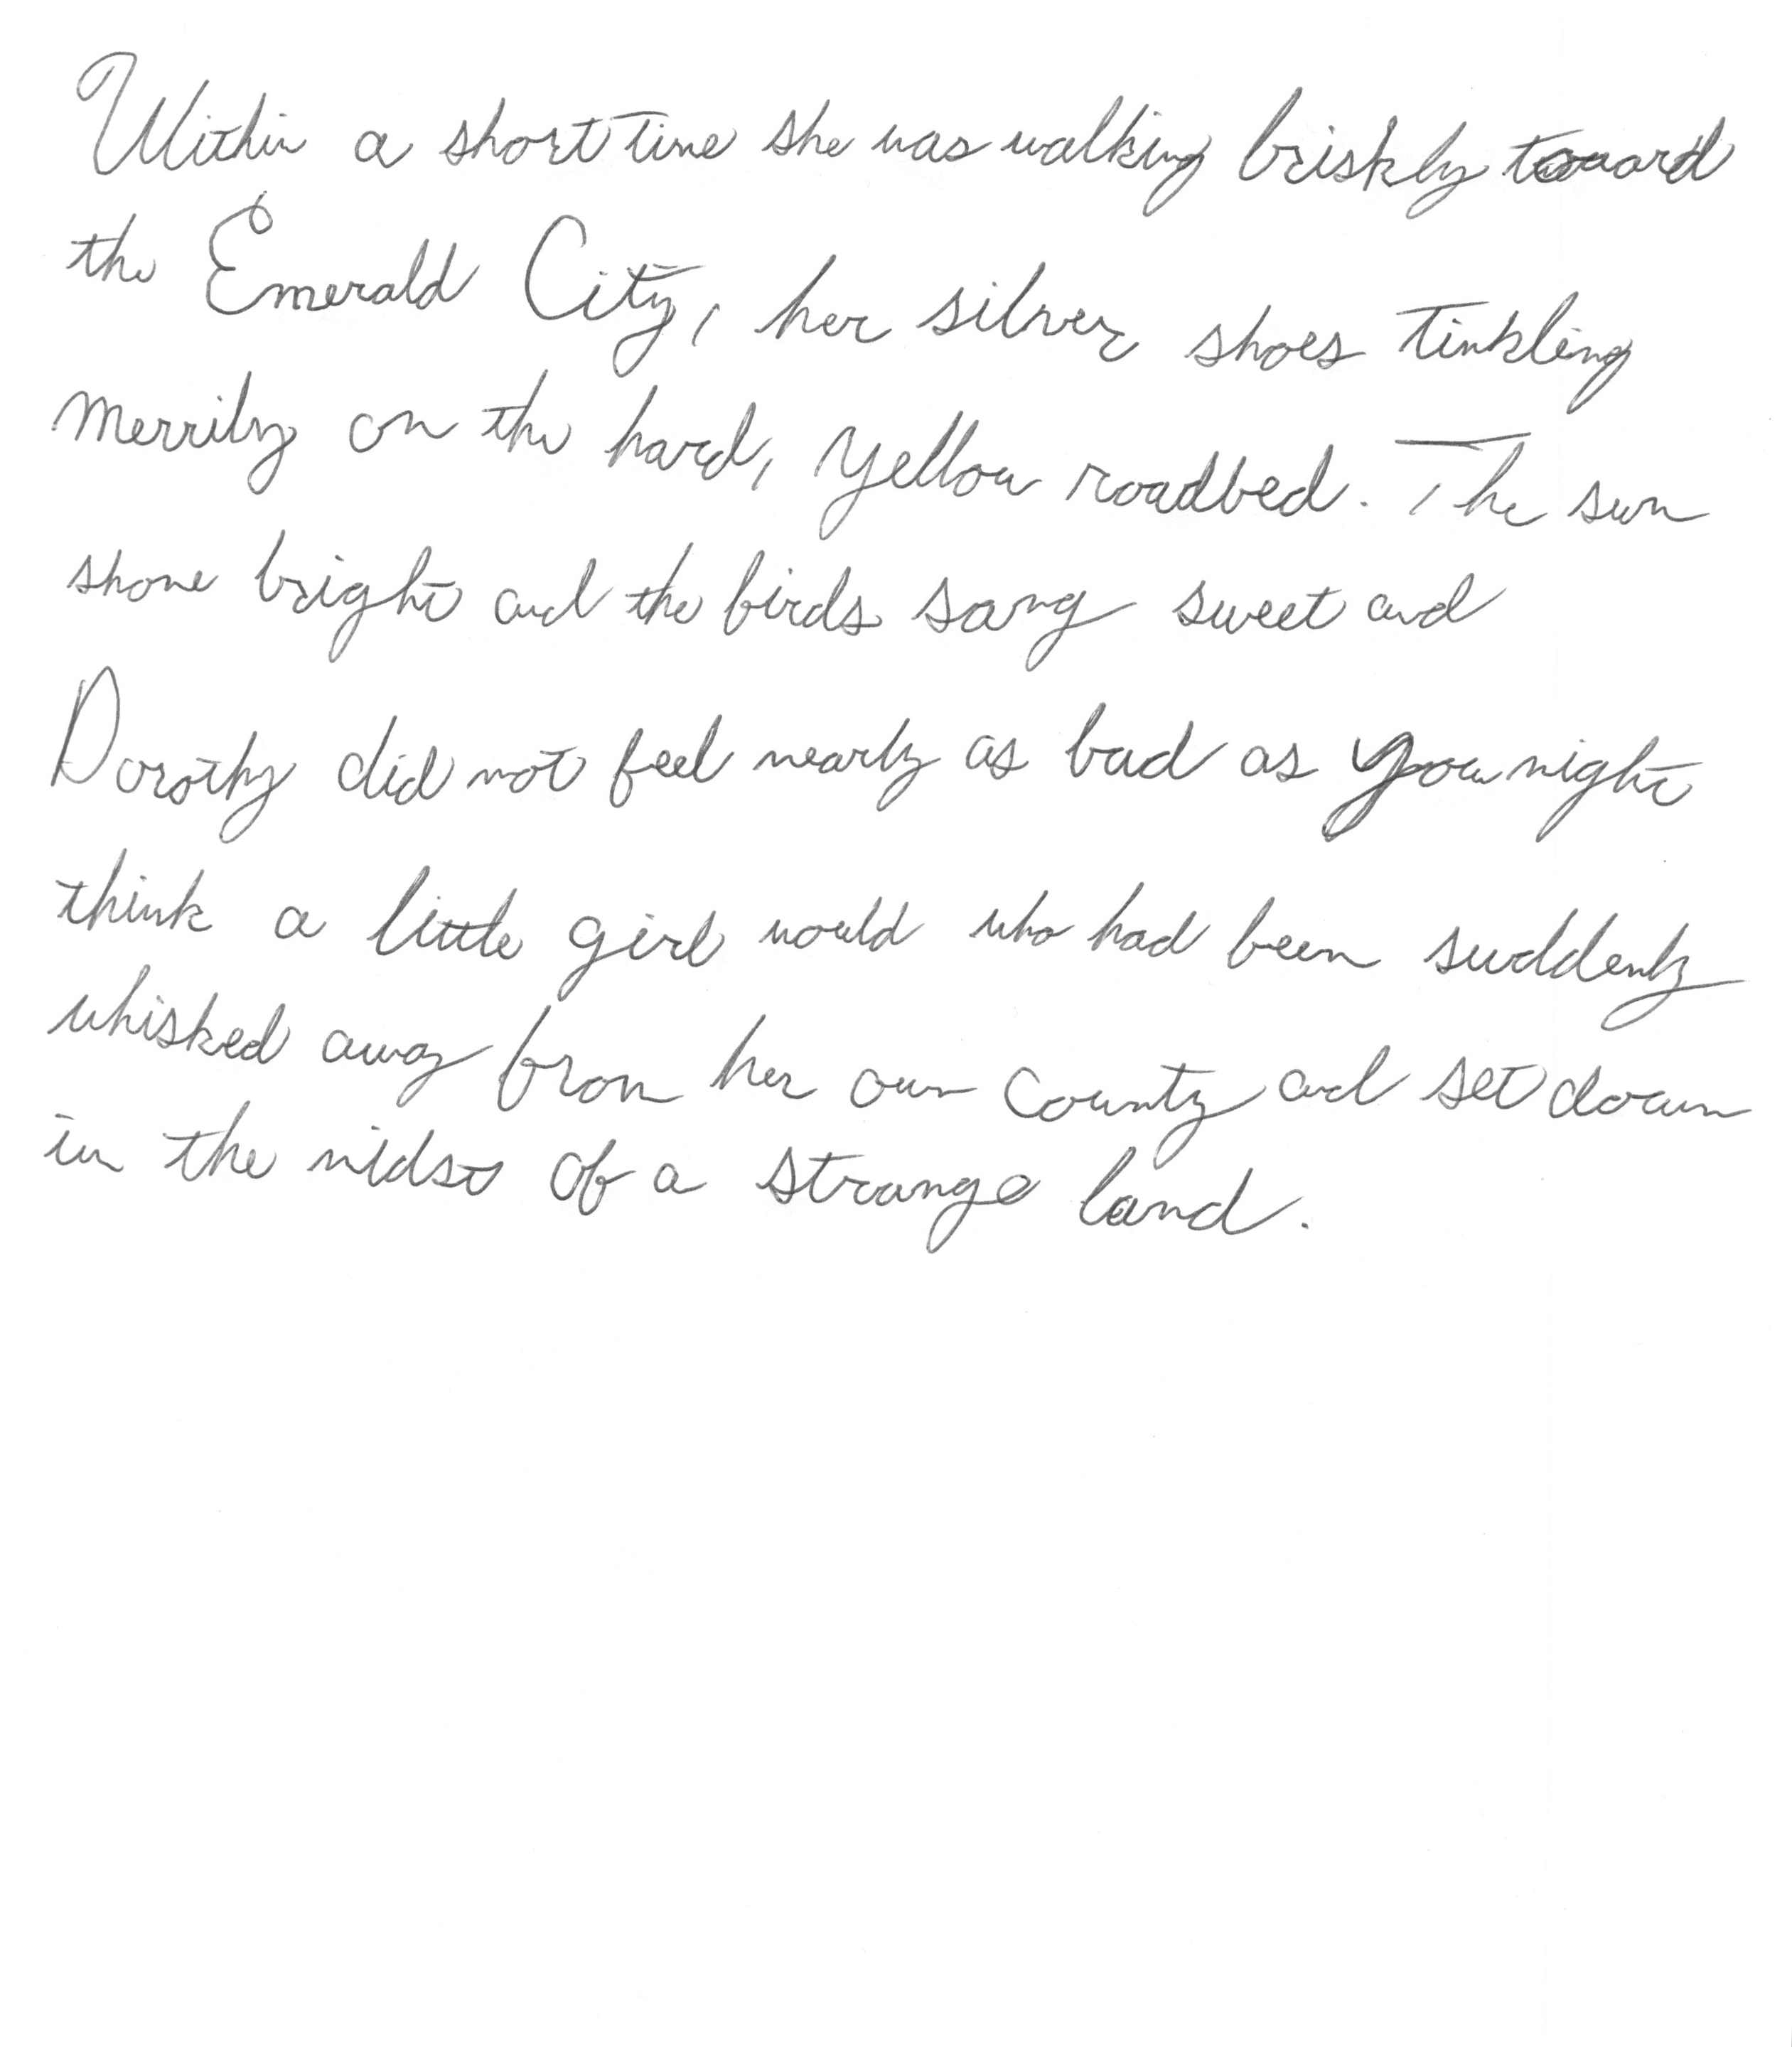 Within a short time she was walking briskly toward
the Emerald City, her silver shoes tinkling
merrily on the hard, yellow roadbed. The sun
shone bright and the birds sang sweet and
Dorothy did not feel nearly as bad as you might
think a little girl would who had been suddenly
whisked away from her own county and set down
in the midst of a strange land.